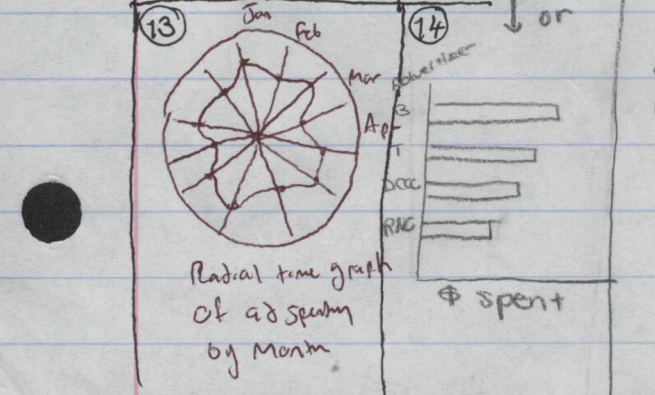 13
Jan
Feb
Mar
Apr
Radial time graph
of ad spending
by Month
14
↓ or
Advertiser
B
T
DCCC
RNC
$ spent